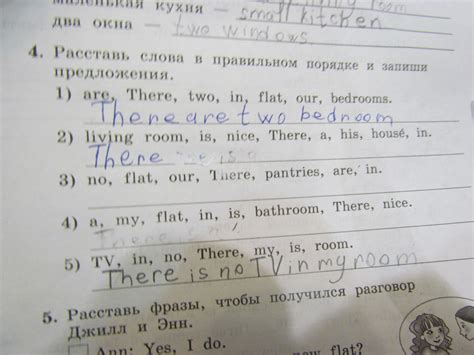 маленькая кухня – small kitchen
два окна – two windows
4. Расставь слова в правильном порядке и запиши
предложения.
1) are, There, two, in, flat, our, bedrooms.
There are two bedroom
2) living room, is, nice, There, a, his, house, in.
There is a
3) no, flat, our, There, pantries, are, in.
4) a, my, flat, in, is, bathroom, There, nice.
There is
5) TV, in, no, There, my, is, room.
There is no TV in my room
5. Расставь фразы, чтобы получился разговор
Джилл и Энн.
Ann: Yes, I do.
new flat?